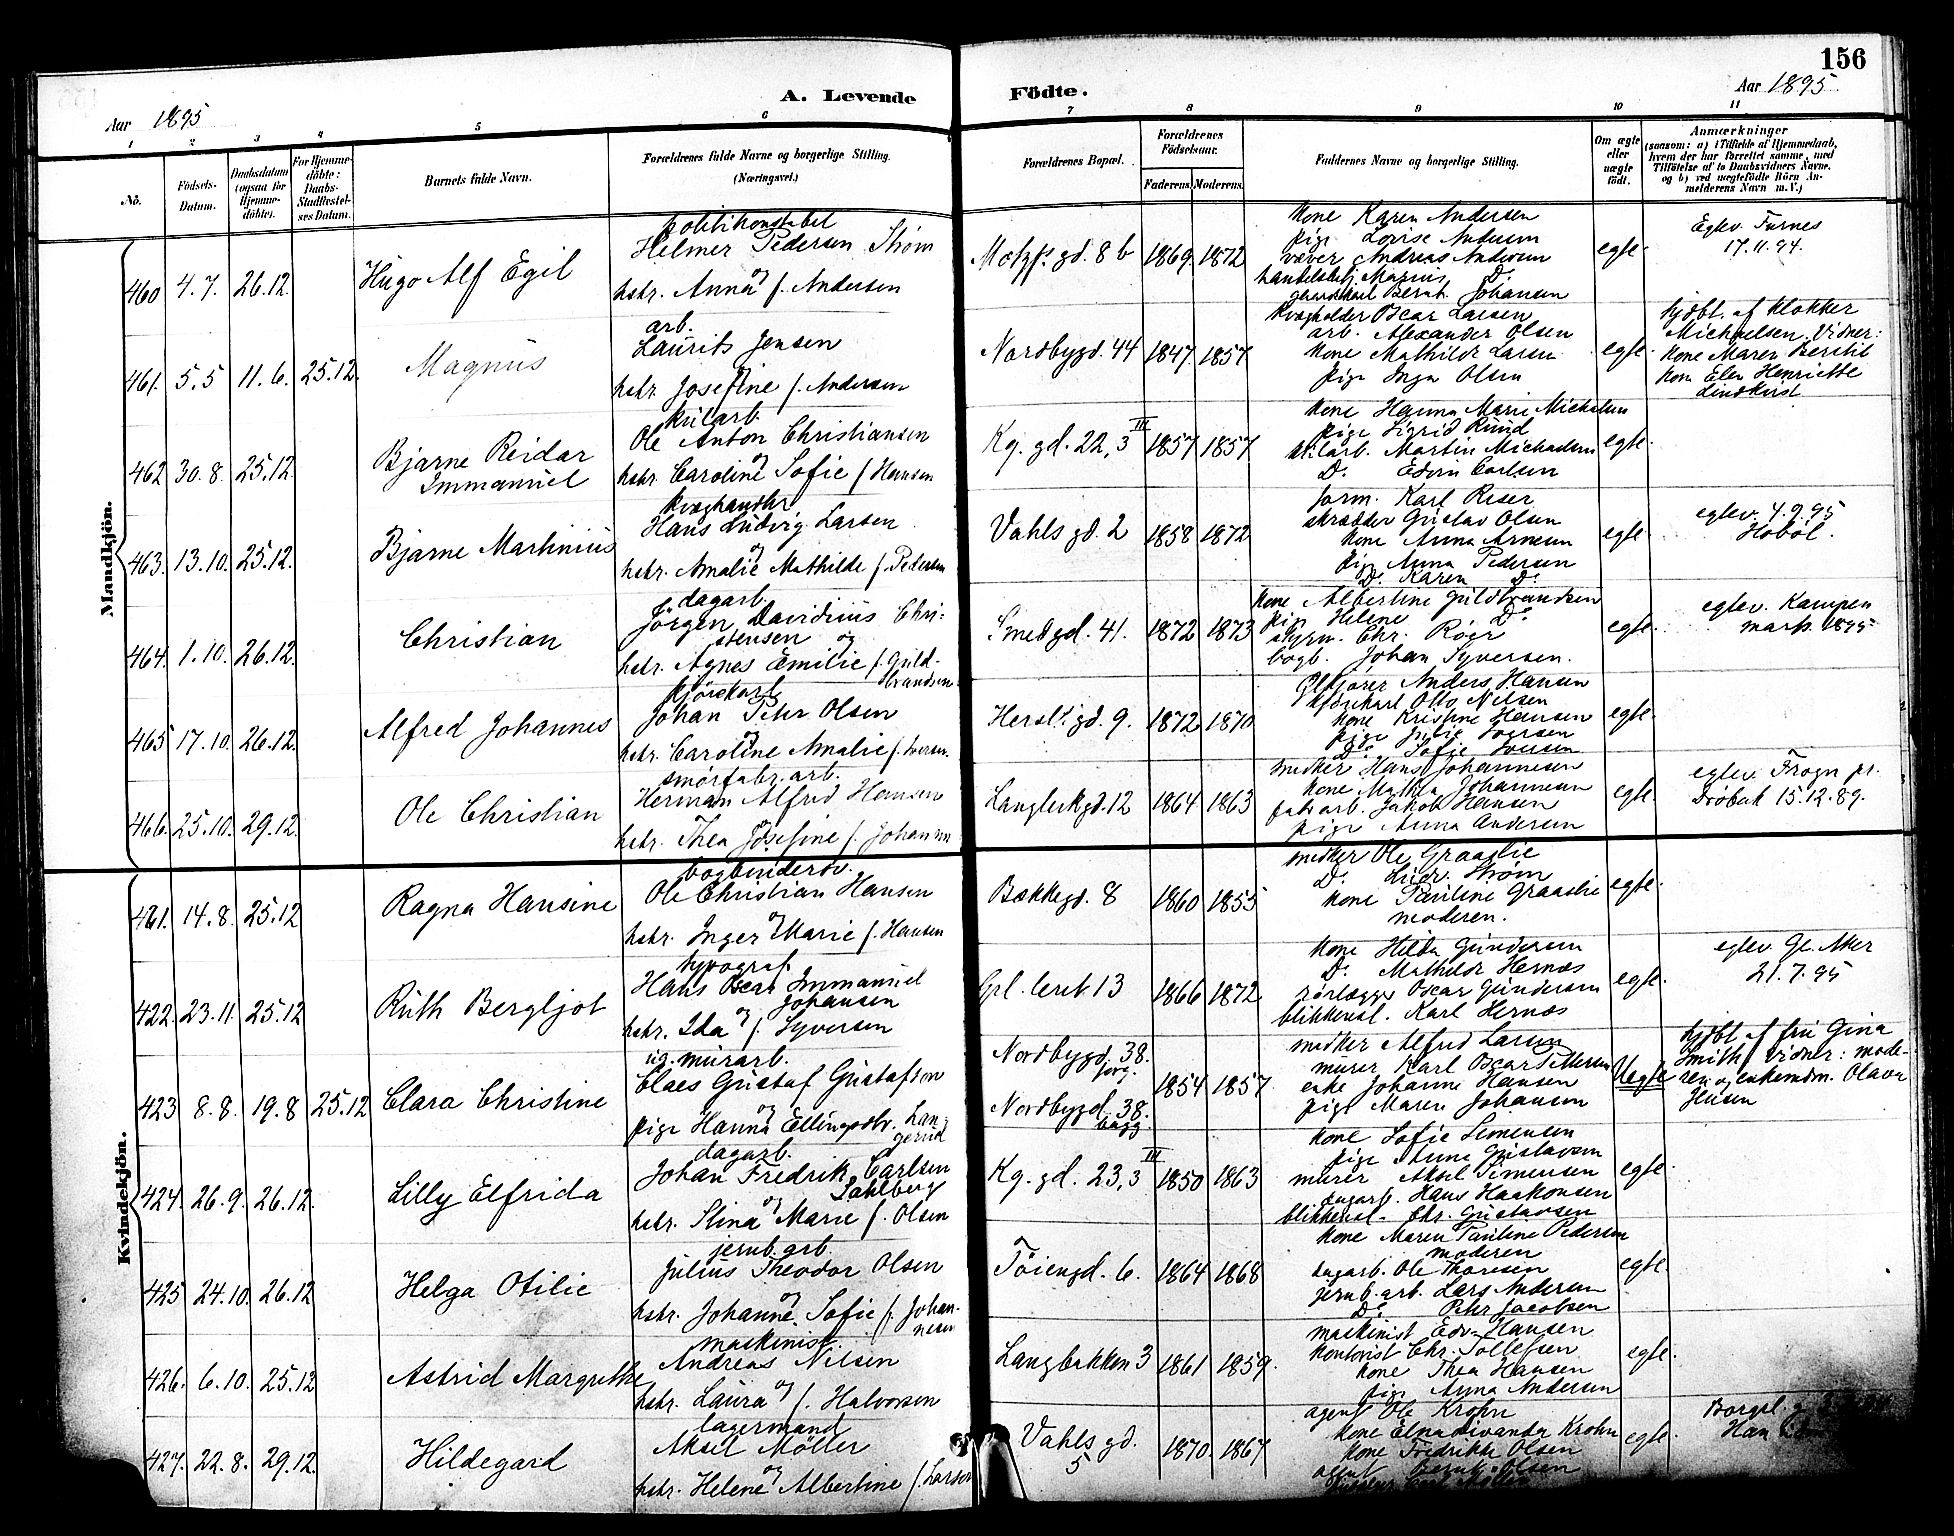 156
A. Levende Födte.
Aar 1895
Aar 1895
1 2 3 4 5 6 7 8 9 10 11
No.
Födsels-Datum.
Daabsdatum (ogsaa for Hjemme-döbte).
For Hjemme-döbte: Daabs-Stadfestel-ses Datum.
Barnets fulde Navn.
Forældrenes fulde Navne og borgerlige Stilling. (Næringsvei.)
Forældrenes Bopæl.
Forældrenes Födselsaar.
Faderens. Moderens.
Faddernes Navne og borgerlige Stilling.
Om ægte eller uægte födt.
Anmærkninger (saasom: a) i Tilfælde af Hjemmedaab, hvem der har forrettet samme, med Tilföielse af to Daabsvidners Navne, og b) ved uægtefödte Börn An-melderens Navn m. V.)
Mandkjön.
460 4.7. 26.12. Hugo Alf Egil
politikonstabel
Helmer Pedersen Strøm
og
hstr. Anna f. Andersen
gd. 8 b 1869 1872
Kone Karen Andersen
pige Lovise Andersen
væver Andreas Andersen
Marius D.
Bernt Johansen
egte.
Egtev. Furnes
17.11.94.
461. 5.5 11.6. 25.12. Magnus
arb.
Laurits Jensen
og
hstr. Josefine f. Andersen
Nordbygd. 44 1847. 1857
Kvægholder Oscar Larsen
arb. Alexander Olsen
Kone Mathilde Larsen
pige Inga Olsen
egte.
hjdbt. af klokker
Michaelsen, Vidner:
Kone Maren Berthil
Kone Elen Henriette
Lindkvist
462 30.8. 25.12. Bjarne Reidar
Immanuel
Ole Anton Christiansen
og
hstr. Caroline Sofie f. Hansen
Kg. gd. 22, 3 III 1857 1857
Kone Hanna Marie Michalsen
pige Sigrid Rund
Martin Michaelsen
D. Edvin Carlsen
egte.
463. 13.10. 25.12. Bjarne Martinius
kvæghandler
Hans Ludvig Larsen
og
hstr. Amalie Mathilde f. Pedersen
Vahls gd. 2 1858 1872
form. Karl Riser
skrædder Gustav Olsen
Kone Anna Arnesen
pige Anna Pedersen
D. Karen D.
egte.
egtev. 4.9.95
Hobøl.
464. 1.10. 26.12. Christian
dagarb.
Jörgen Davidius Chri-
stensen og
hstr. Agnes Emilie f. Guld-
brandsen
Smedgd. 41. 1872 1873
Kone Albertine Guldbrandsen
pige Helene D.
styrm. Chr. Röer
bogb. Johan Syversen.
egte.
egtev. Kampen
marts 1895
465 17.10. 26.12. Alfred Johannes
kjørekarl
Johan Peter Olsen
og
hstr. Caroline Amalie f. Iversen.
Hersl. gd. 9. 1872 1870
Anders Hansen
kjørekarl Otto Nilsen
Kone Kristine Hansen
pige Julie Iversen
D. Sofie Iversen
egte.
466. 25.10. 29.12. Ole Christian
smörfabr. arb.
Herman Alfred Hansen
og
hstr. Thea Josefine f. Johannesen
Langlekgd. 12 1864 1863
snedker Hans Johannesen
Kone Mathla Johannesen
fabr. arb. Jakob Hansen
pige Anna Andersen
egte.
egtev. Frogn pr.
Drøbak 15.12.89.
Kvindekjön.
421. 14.8. 25.12 Ragna Hansine
bogbindersv.
Ole Christian Hansen
og
hstr. Inger Marie f. Hansen
Bækkegd. 8 1860 1855
snedker Ole Graaslie
D. Strøm
Kone Pauline Graaslie
moderen.
egte.
422. 23.11. 25.12 Ruth Bergljot
typograf
Hans Oscar Immanuel
Johansen
og
hstr. Ida f. Syversen
Grl. leret 13 1866 1872.
Kone Hilda Gundersen
D. Mathilde Hernæs
rörlægger Oscar Gundersen
blikkensl. Karl Hernæs
egte.
egtev. Gl. Aker
21.7.95
423 8.8. 19.8 25.12 Clara Christine
ug. murarb.
Claes Gustaf Gustafson
og
pige Hanna Ellingsdtr. Lan-
gerud
Nordbygd. 38.
forg.
Nordbygd. 38.
bagg.
1854 1857
snedker Alfred Larsen
murer Karl Oscar Pettersen
enke Johanne Hansen
pige Maren Johansen
Uegte
hjdbt. af fru Gina
Smith, Vidner: mode-
ren og enkemdm. Olava
424. 26.9. 26.12. Lilly Elfrida
dagarb.
Johan Fredrik Carlsen
Dahlberg
og
hstr. Stina Marie f. Olsen
Kg. gd. 23, 3 III 1850 1863
Kone Sofie Simensen
pige Anna Gustavsen
murer Aksel Simensen
dagarb. Hans Haakonsen
blikkensl. Chr. Gustavsen
egte.
425 24.10. 26.12 Helga Otilie
jernb. arb.
Julius Theodor Olsen
og
hstr. Johanne Sofie f. Johan-
nesen
Töiengd. 6. 1864 1868
Kone Maren Pauline Pedersen
moderen
dagarb. Ole Thoresen
jernb. arb. Lars Andersen
D. Peter Jacobsen
egte.
426. 6.10. 25.12 Astrid Margrethe
maskinist
Andreas Nilsen
og
hstr. Laura f. Halvorsen
Langbakken 3 1861 1859.
maskinist Edv. Hansen
kontorist Chr. Tollefsen
Kone Thea Hansen
pige Anna Andersen
egte.
427. 22.8. 29.12. Hildegard
lagermand
Aksel Möller
og
hstr. Helene Albertine f. Larsen
Vahls gd.
5
1870. 1867
agent Ole Krohn
Kone Elna Krohn
Kone Fredrikke Olsen
agent Bernt Olsen
egte.